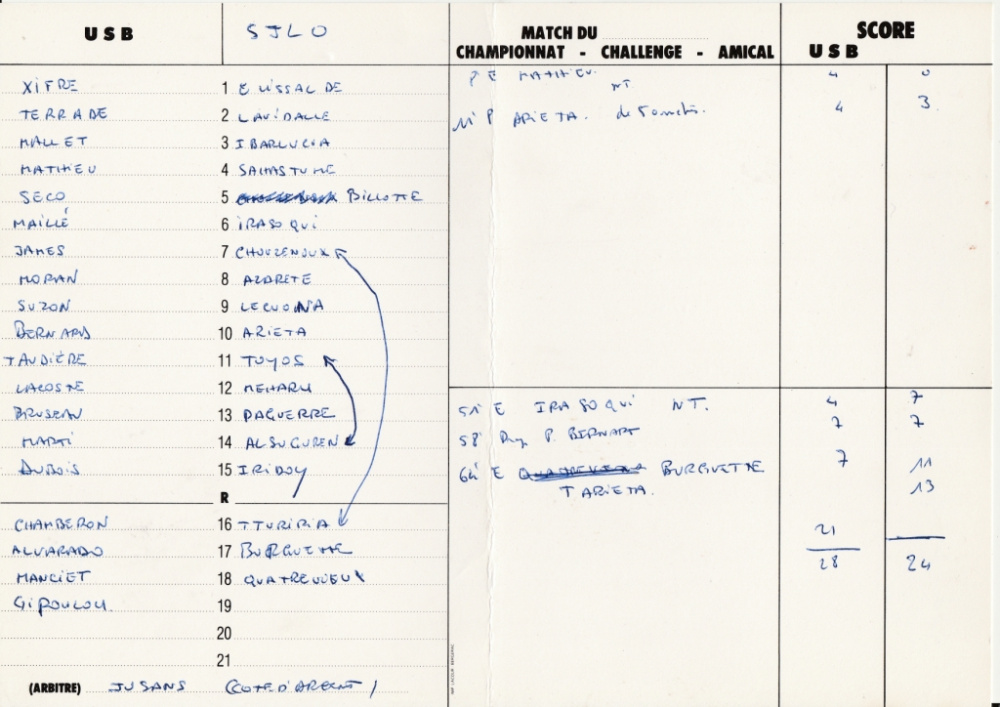 USB SJLO MATCH DU SCORE
CHAMPIONNAT - CHALLENGE - AMICAL USB
XIFRE 1
TERRADE 2 LAVIDALLE
MALLET 3 IBARLUCIA
MATHIEU 4
SECO 5 BILLOTTE
MAILLÉ 6 IRASOQUI
JAMES 7 CHOUZENOUX
MORAN 8 AZARETE
SUZON 9 LECUONA
BERNARD 10 ARIETA
TAUDIÈRE 11 TOYOS
LACOSTE 12 MEHARU
13 DAGUERRE
MARTI 14 ALSUGUREN
DUBOIS 15 IRIDOY
R
CHAMBERON 16 TTURIRIA
ALVARADO 17 BURGUETTE
MANCIET 18 QUATREVIEUX
GIPOULOU 19
20
21
(ARBITRE) JUSANS (COTE D'ARGENT)
E MATHIEU 4 0
NT
11' P ARIETA. de 50 mètres. 4 3
51' E IRASOQUI NT. 4 7
58' P. BERNARD 7 7
64' E BURGUETTE 7 11
T ARIETA. 13
21
28 24